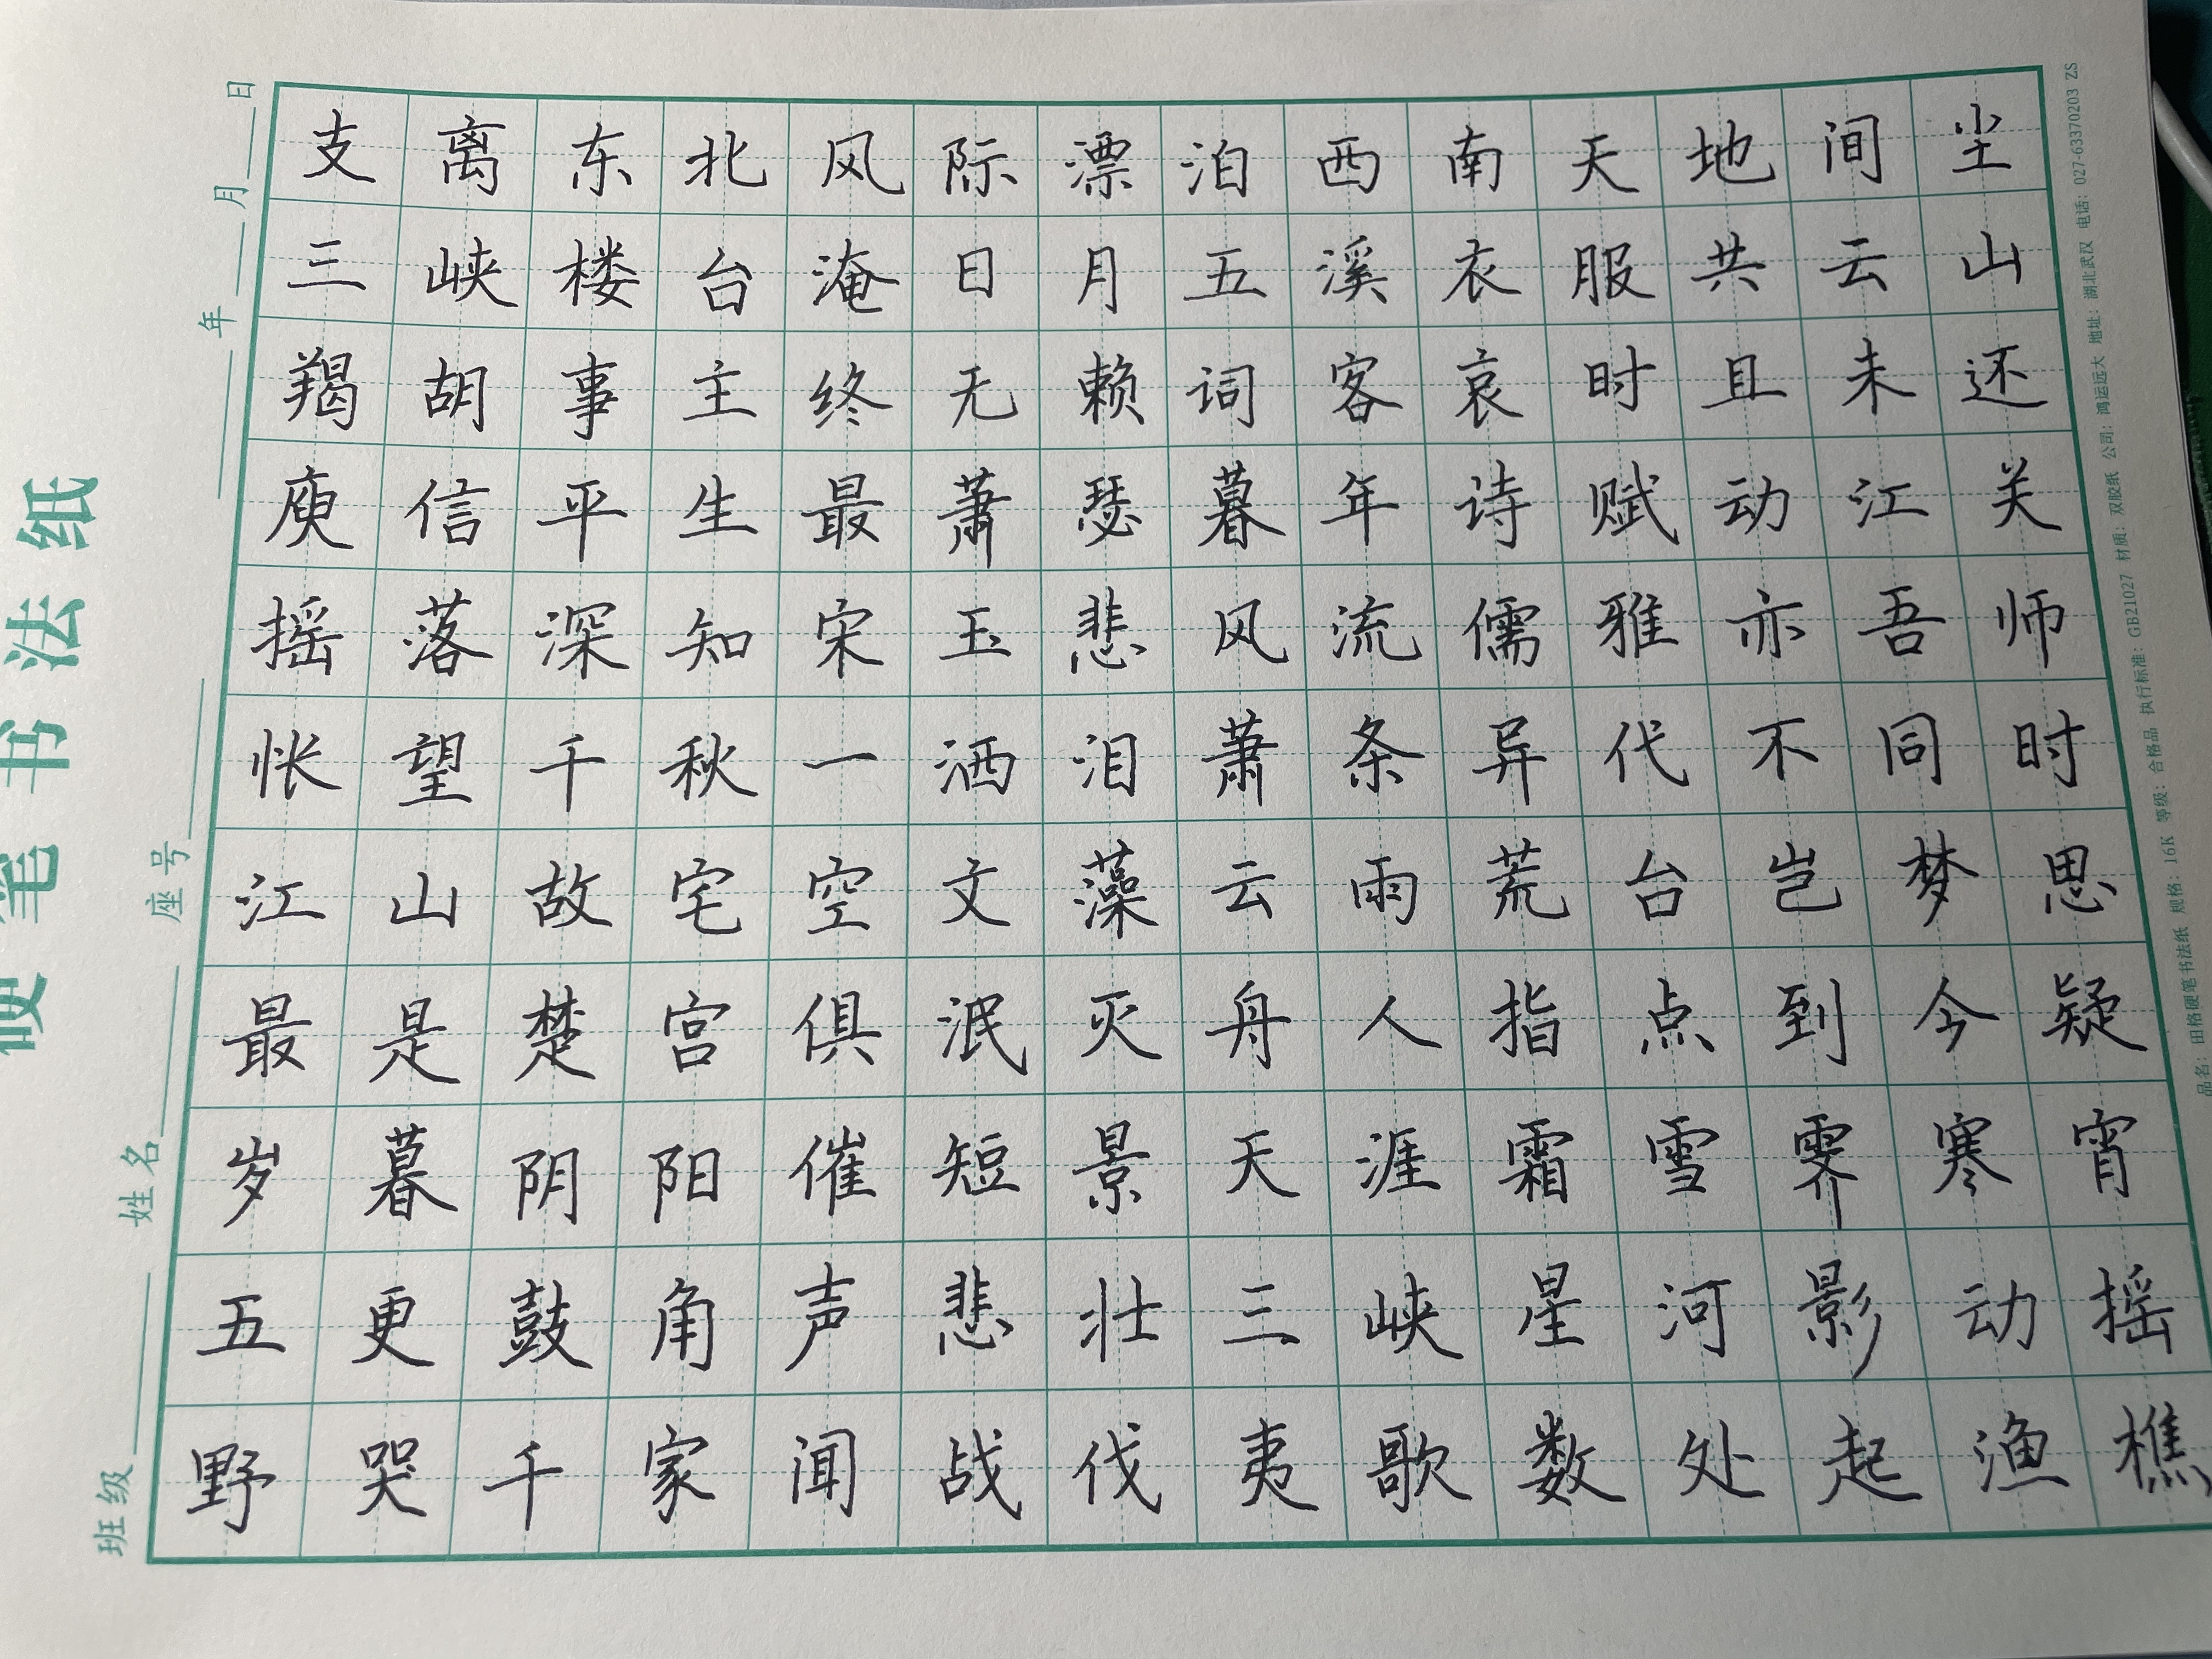 硬笔书法纸
班级 姓名 座号 年 月 日
支离东北风际漂泊西南天地间尘
三峡楼台淹日月五溪衣服共云山
羯胡事主终无赖词客哀时且未还
庾信平生最萧瑟暮年诗赋动江关
摇落深知宋玉悲风流儒雅亦吾师
怅望千秋一洒泪萧条异代不同时
江山故宅空文藻云雨荒台岂梦思
最是楚宫俱泯灭舟人指点到今疑
岁暮阴阳催短景天涯霜雪霁寒宵
五更鼓角声悲壮三峡星河影动摇
野哭千家闻战伐夷歌数处起渔樵
品名：田格硬笔书法纸 规格：16K 等级：合格品 执行标准：GB21027 材质：双胶纸 公司：鸿运远大 地址：湖北武汉 电话：027-63370203 ZS